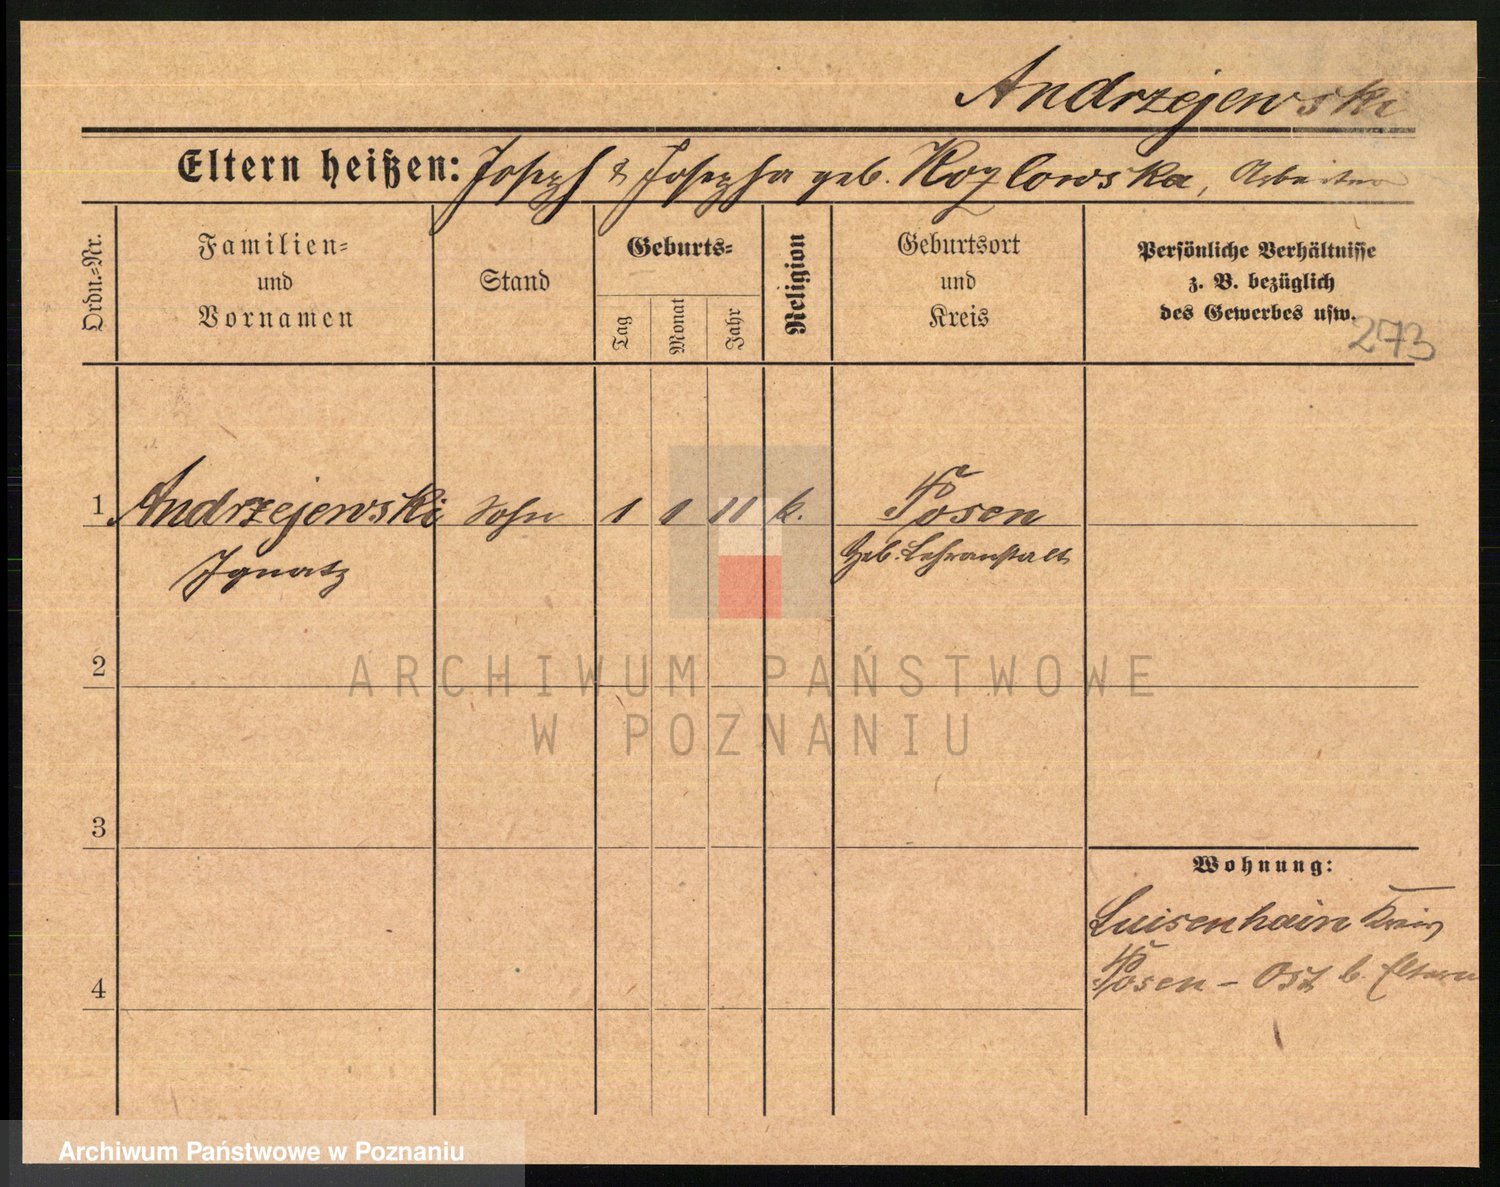 Andrzejewski
Eltern heißen: Joseph & Josepha geb. Kozlowska, Arbeiter
Ordn.=Nr.
Familien=
und
Vornamen
Stand
Geburts=
Tag
Monat
Jahr
Religion
Geburtsort
und
Kreis
Persönliche Verhältnisse
z. B. bezüglich
des Gewerbes usw.
273
1 Andrzejewski Sohn 1 1 11 k. Posen
Ignatz Heb. Lehranstalt
2
ARCHIWUM PAŃSTWOWE
W POZNANIU
3
Wohnung:
Luisenhain Kreis
4 Posen - Ost b. Eltern
Archiwum Państwowe w Poznaniu